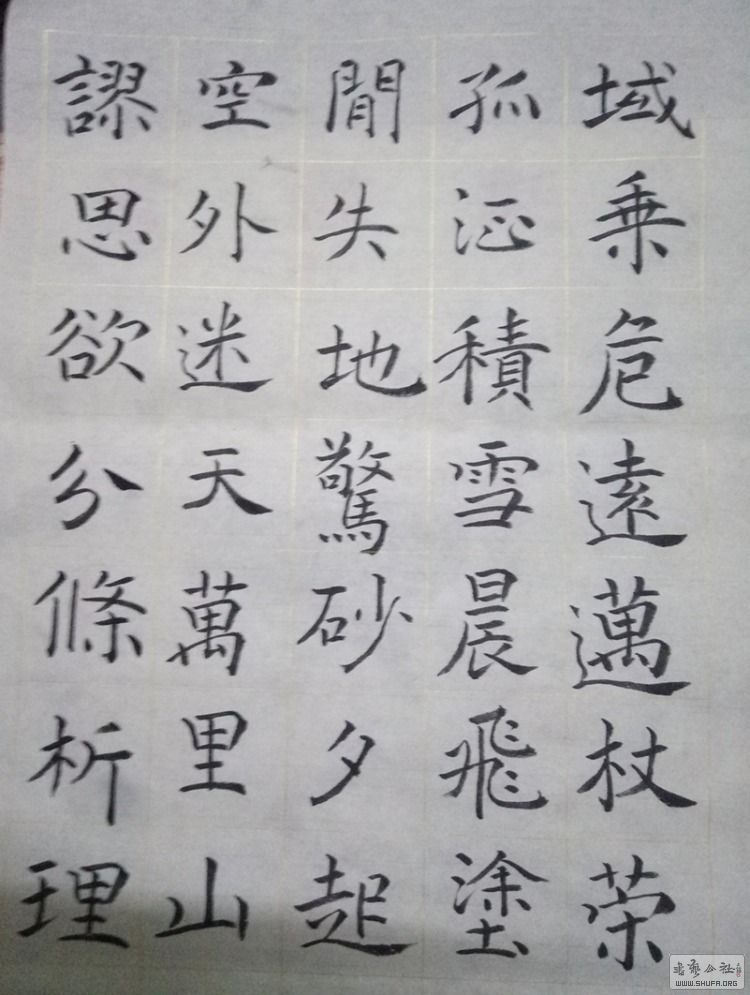 域乘危遠邁杖荣
孤征積雪晨飛塗
閒失地驚砂夕起
空外迷天萬里山
謬思欲分條析理
公社
WWW.SHUFA.ORG